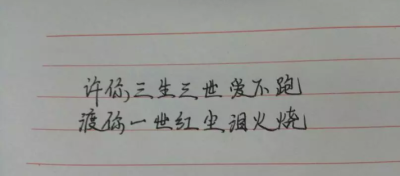 许你,三生三世爱不跑
渡你一世红尘泪火烧